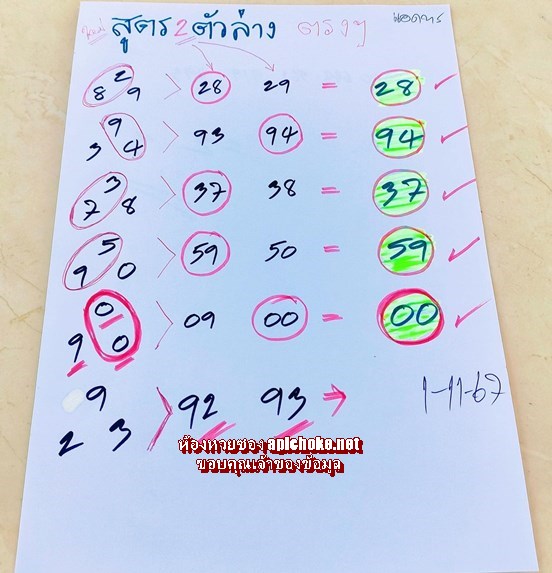 ใหม่ สูตร 2 ตัวล่าง ตรงๆ
2
8 9 > 28 29 = 28 ✓
9
3 4 > 93 94 = 94 ✓
3
7 8 > 37 38 = 37 ✓
5
9 0 > 59 50 = 59 ✓
0
9 0 > 09 00 = 00 ✓
9
2 3 > 92 93 →
1-11-67
ห้องหวยซอง apichoke.net
ขอบคุณเจ้าของข้อมูล